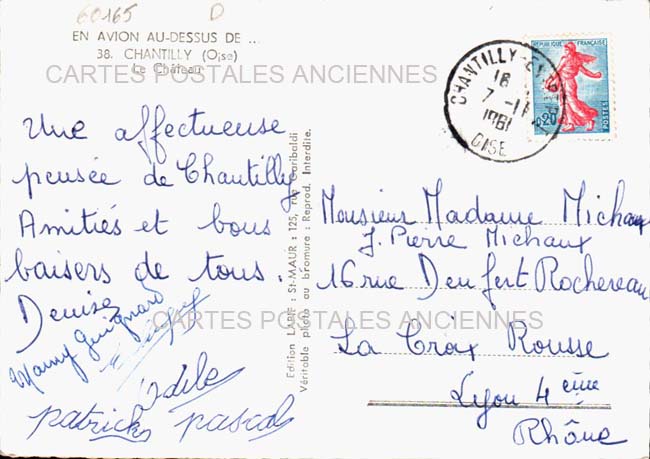 60165 D
EN AVION AU-DESSUS DE ...
38. CHANTILLY (Oise)
Le Château
CARTES POSTALES ANCIENNES
Une affectueuse
pensée de Chantilly
Amitiés et bons
baisers de tous.
Denise
Mamy Guignard
Odile
patrick pascal
Edition LAPIE : St-MAUR : 125, rue Garibaldi
Véritable photo au bromure : Reprod. Interdite.
CHANTILLY
18
7 -11
1961
OISE
REPUBLIQUE FRANÇAISE
0,20
POSTES
Monsieur Madame Michaux
J. Pierre Michaux
16 rue Denfert Rochereau
CARTES POSTALES ANCIENNES
La Croix Rousse
Lyon 4 eme
Rhône